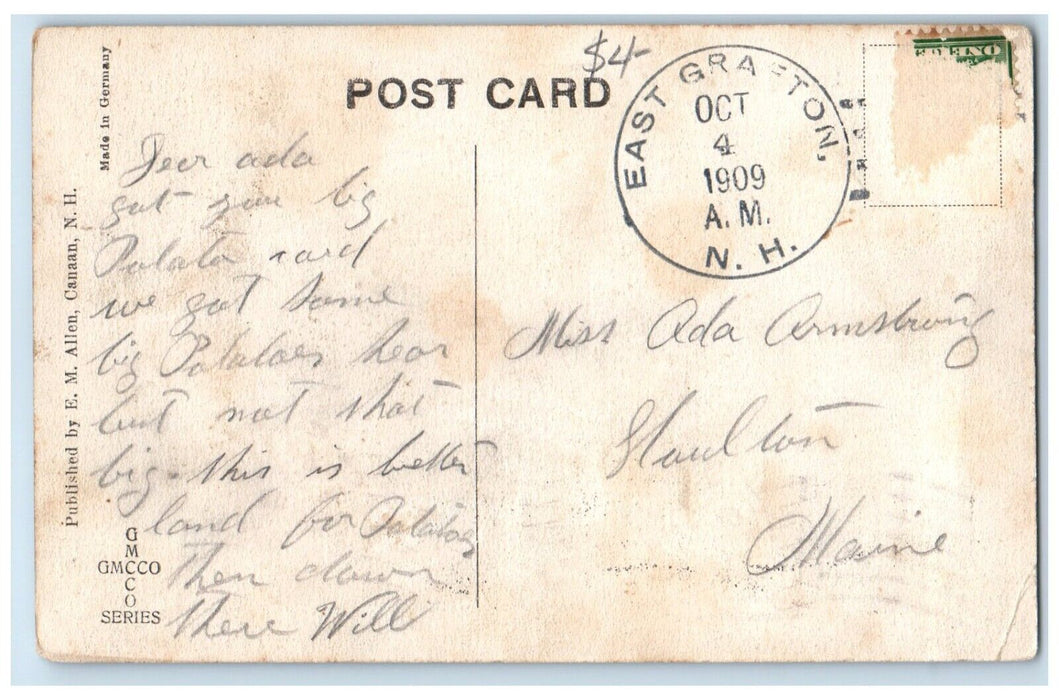 POST CARD
$4-
EAST GRAFTON,
OCT
4
1909
A.M.
N. H.
Made in Germany
Published by E. M. Allen, Canaan, N. H.
Deer ada
got your big
Potato card
we got some
big Potatoes hear
but not that
big. this is better
land for Potatoes
then down
there Will
Miss Ada Armstrong
Houlton
Maine
G
M
GMCCO
C
O
SERIES